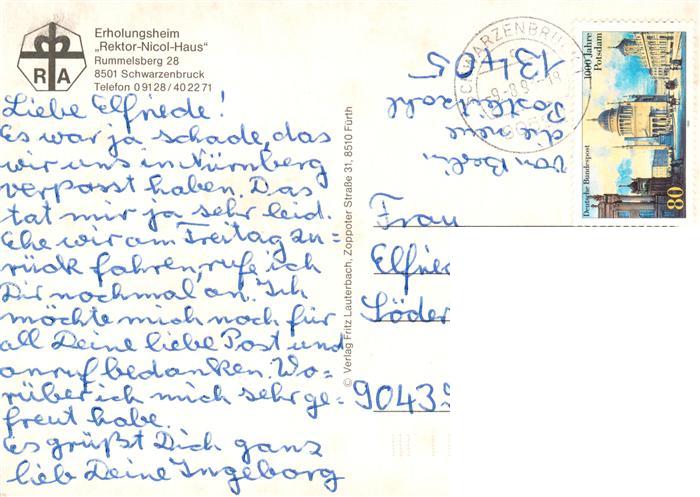 Erholungsheim
„Rektor-Nicol-Haus"
Rummelsberg 28
8501 Schwarzenbruck
Telefon 0 91 28 / 40 22 71
R A
Liebe Elfriede!
Es war ja schade, das
wir uns in Nürnberg
verpasst haben. Das
tat mir ja sehr leid.
Ehe wir am Freitag zu=
rück fahren, rufe ich
Dir nochmal an. Ich
möchte mich noch für
all Deine liebe Post und
anruf bedanken. Wo=
rüber ich mich sehr ge=
freut habe.
Es grüßt Dich ganz
lieb Deine Ingeborg
© Verlag Fritz Lauterbach, Zoppoter Straße 31, 8510 Fürth
von Berlin,
die neue
Postleitzahl
13405
SCHWARZENBRUCK
Deutsche Bundespost
1000 Jahre
Potsdam
80
Frau
Elfrie
Söder
9043